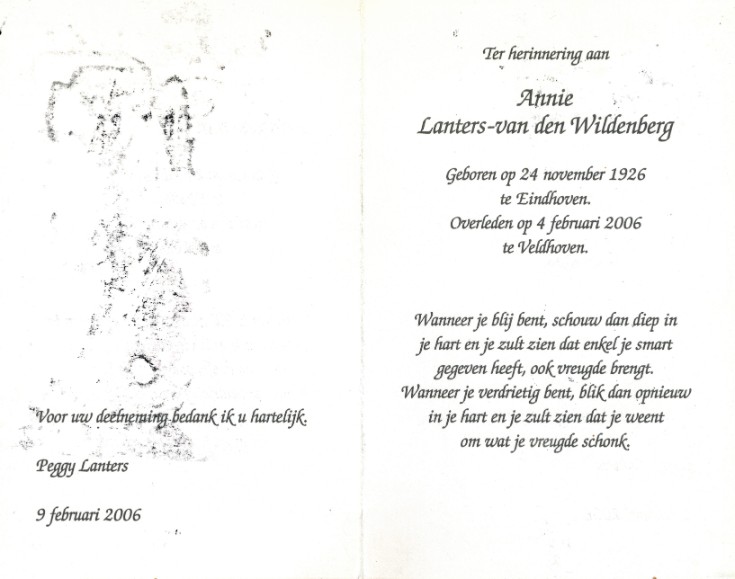 Voor uw deelneming bedank ik u hartelijk.
Peggy Lanters
9 februari 2006
Ter herinnering aan
Annie
Lanters-van den Wildenberg
Geboren op 24 november 1926
te Eindhoven.
Overleden op 4 februari 2006
te Veldhoven.
Wanneer je blij bent, schouw dan diep in
je hart en je zult zien dat enkel je smart
gegeven heeft, ook vreugde brengt.
Wanneer je verdrietig bent, blik dan opnieuw
in je hart en je zult zien dat je weent
om wat je vreugde schonk.